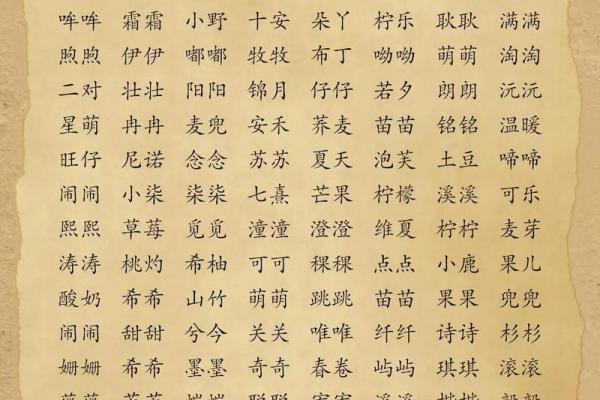 哞哞 霜霜 小野 十安 朵丫 柠乐 耿耿 满满
煦煦 伊伊 嘟嘟 牧牧 布丁 呦呦 萌萌 淘淘
二对 壮壮 阳阳 锦月 仔仔 若夕 朗朗 沅沅
星萌 冉冉 麦兜 安禾 荞麦 苗苗 铭铭 温暖
旺仔 尼诺 念念 苏苏 夏天 泡芙 土豆 啼啼
闹闹 小柒 柒柒 七熹 芒果 柠檬 溪溪 可乐
熙熙 草莓 觅觅 潼潼 澄澄 维夏 柠柠 麦芽
涛涛 桃灼 希柚 可可 稞稞 点点 小鹿 果儿
酸奶 希希 山竹 萌萌 跳跳 苗苗 果果 兜兜
闹闹 甜甜 兮今 关关 唯唯 纤纤 诗诗 杉杉
姗姗 希希 墨墨 奇奇 春卷 屿屿 琪琪 滚滚